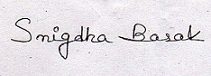 Snigdha Basak